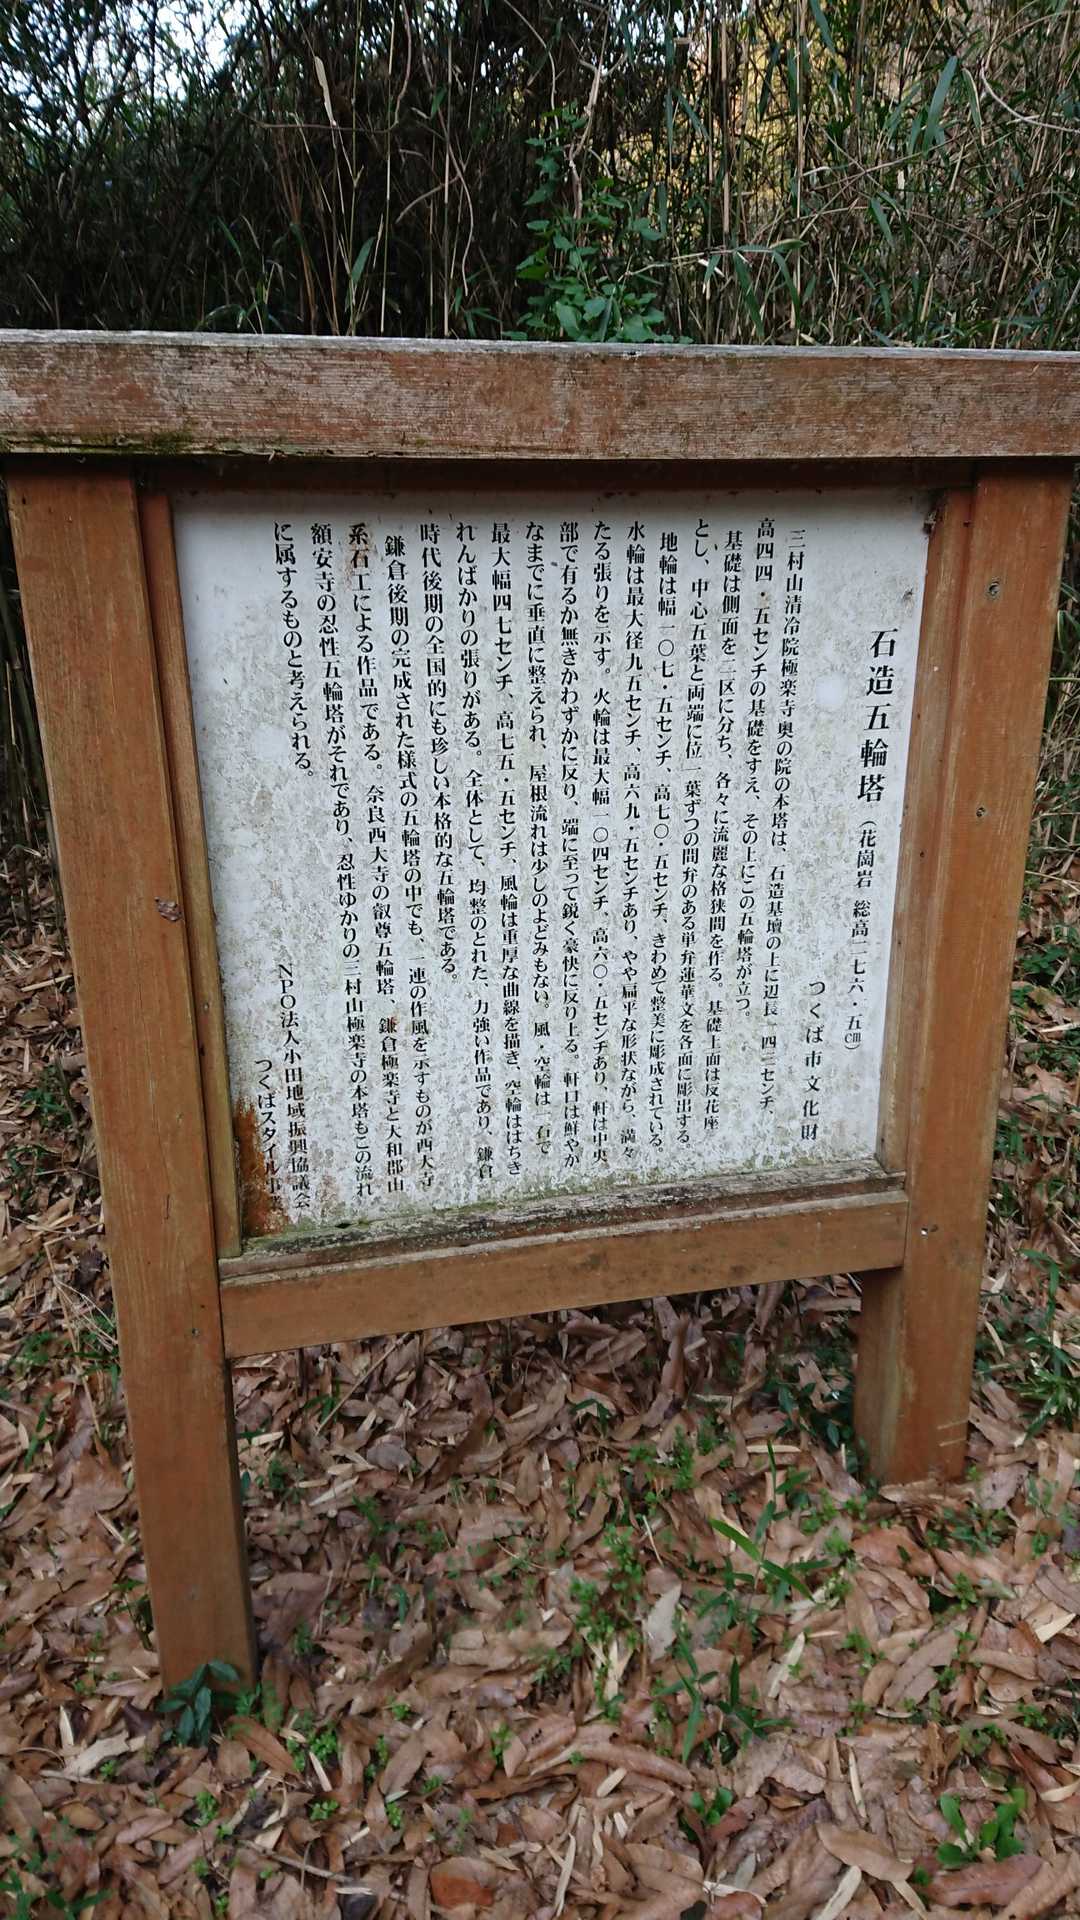 石造五輪塔（花崗岩 総高二七六・五㎝）
つくば市文化財
三村山清冷院極楽寺奥の院の本塔は、石造基壇の上に辺長一四三センチ、
高四四・五センチの基礎をすえ、その上にこの五輪塔が立つ。
基礎は側面を二区に分ち、各々に流麗な格狭間を作る。基礎上面は反花座
とし、中心五葉と両端に位一葉ずつの間弁のある単弁蓮華文を各面に彫出する。
地輪は幅一〇七・五センチ、高七〇・五センチ、きわめて整美に彫成されている。
水輪は最大径九五センチ、高六九・五センチあり、やや扁平な形状ながら、満々
たる張りを示す。火輪は最大幅一〇四センチ、高六〇・五センチあり、軒は中央
部で有るか無きかわずかに反り、端に至って鋭く豪快に反り上る。軒口は鮮やか
なまでに垂直に整えられ、屋根流れは少しのよどみもない。風・空輪は一石で
最大幅四七センチ、高七五・五センチ、風輪は重厚な曲線を描き、空輪ははちき
れんばかりの張りがある。全体として、均整のとれた、力強い作品であり、鎌倉
時代後期の全国的にも珍しい本格的な五輪塔である。
鎌倉後期の完成された様式の五輪塔の中でも、一連の作風を示すものが西大寺
系石工による作品である。奈良西大寺の叡尊五輪塔、鎌倉極楽寺と大和郡山
額安寺の忍性五輪塔がそれであり、忍性ゆかりの三村山極楽寺の本塔もこの流れ
に属するものと考えられる。
NPO法人小田地域振興協議会
つくばスタイル事業